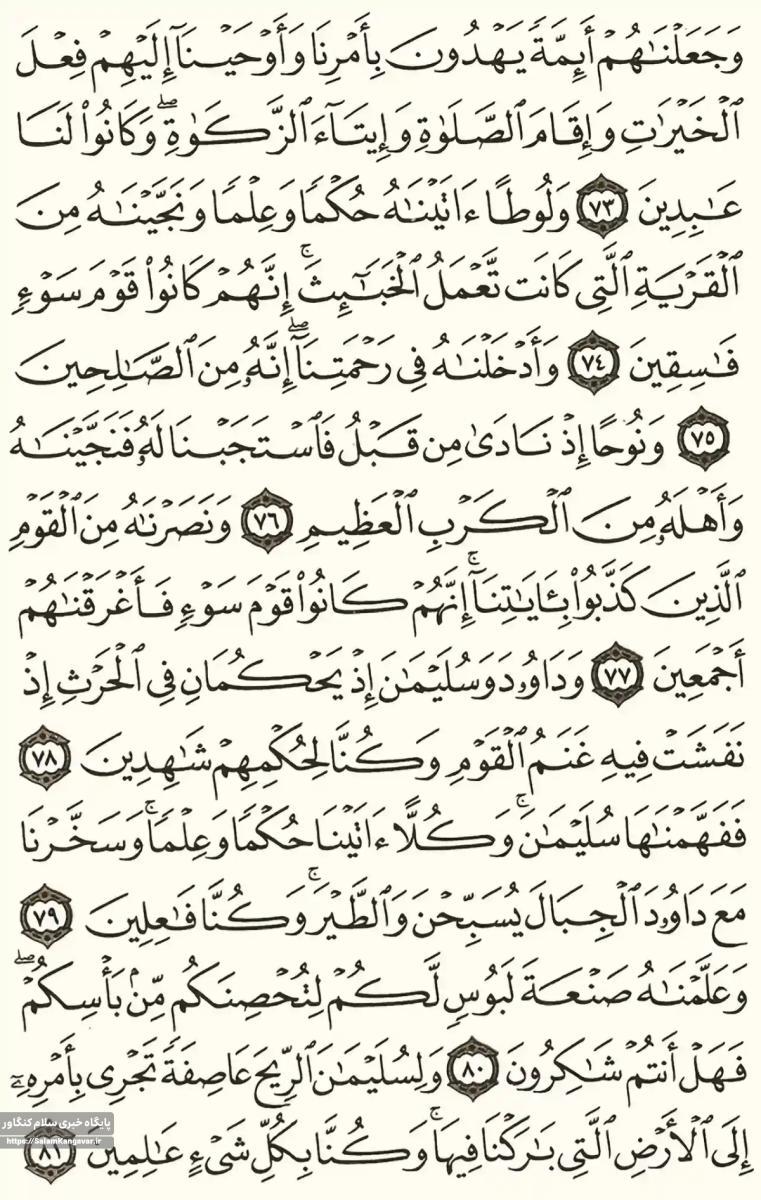 وَجَعَلْنَٰهُمْ أَئِمَّةً يَهْدُونَ بِأَمْرِنَا وَأَوْحَيْنَآ إِلَيْهِمْ فِعْلَ
ٱلْخَيْرَٰتِ وَإِقَامَ ٱلصَّلَوٰةِ وَإِيتَآءَ ٱلزَّكَوٰةِ ۖ وَكَانُوا۟ لَنَا
عَٰبِدِينَ ٧٣ وَلُوطًا ءَاتَيْنَٰهُ حُكْمًا وَعِلْمًا وَنَجَّيْنَٰهُ مِنَ
ٱلْقَرْيَةِ ٱلَّتِى كَانَت تَّعْمَلُ ٱلْخَبَٰٓئِثَ ۚ إِنَّهُمْ كَانُوا۟ قَوْمَ سَوْءٍ
فَٰسِقِينَ ٧٤ وَأَدْخَلْنَٰهُ فِى رَحْمَتِنَآ ۖ إِنَّهُۥ مِنَ ٱلصَّٰلِحِينَ
٧٥ وَنُوحًا إِذْ نَادَىٰ مِن قَبْلُ فَٱسْتَجَبْنَا لَهُۥ فَنَجَّيْنَٰهُ
وَأَهْلَهُۥ مِنَ ٱلْكَرْبِ ٱلْعَظِيمِ ٧٦ وَنَصَرْنَٰهُ مِنَ ٱلْقَوْمِ
ٱلَّذِينَ كَذَّبُوا۟ بِـَٔايَٰتِنَآ ۚ إِنَّهُمْ كَانُوا۟ قَوْمَ سَوْءٍ فَأَغْرَقْنَٰهُمْ
أَجْمَعِينَ ٧٧ وَدَاوُۥدَ وَسُلَيْمَٰنَ إِذْ يَحْكُمَانِ فِى ٱلْحَرْثِ إِذْ
نَفَشَتْ فِيهِ غَنَمُ ٱلْقَوْمِ وَكُنَّا لِحُكْمِهِمْ شَٰهِدِينَ ٧٨
فَفَهَّمْنَٰهَا سُلَيْمَٰنَ ۚ وَكُلًّا ءَاتَيْنَا حُكْمًا وَعِلْمًا ۚ وَسَخَّرْنَا
مَعَ دَاوُۥدَ ٱلْجِبَالَ يُسَبِّحْنَ وَٱلطَّيْرَ ۚ وَكُنَّا فَٰعِلِينَ ٧٩
وَعَلَّمْنَٰهُ صَنْعَةَ لَبُوسٍ لَّكُمْ لِتُحْصِنَكُم مِّنۢ بَأْسِكُمْ ۖ
فَهَلْ أَنتُمْ شَٰكِرُونَ ٨٠ وَلِسُلَيْمَٰنَ ٱلرِّيحَ عَاصِفَةً تَجْرِى بِأَمْرِهِۦٓ
إِلَى ٱلْأَرْضِ ٱلَّتِى بَٰرَكْنَا فِيهَا ۚ وَكُنَّا بِكُلِّ شَىْءٍ عَٰلِمِينَ ٨١
پایگاه خبری سلام کنگاور
https://SalamKangavar.ir